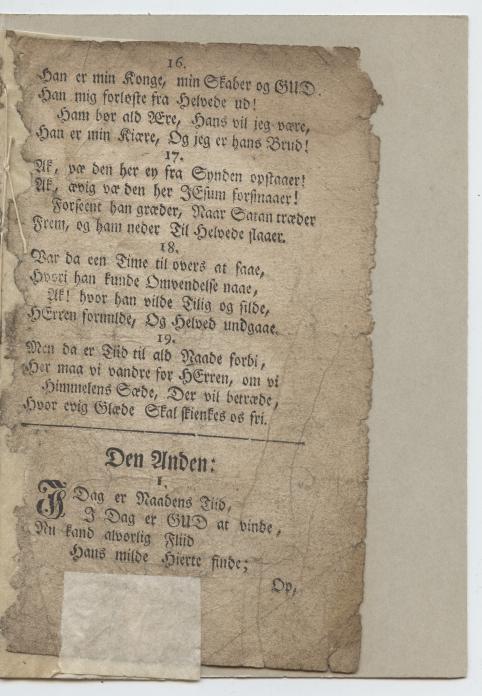 16.
Han er min Konge, min Skaber og GUD.
Han mig forløste fra Helvede ud!
Ham bør ald Ære, Hans vil jeg være,
Han er min Kiære, Og jeg er hans Brud!
17.
Ak, væ den her ey fra Synden opstaaer!
Ak, ævig væ den her JEsum forsmaaer!
Forseent han græder, Naar Satan træder
Frem, og ham neder Til Helvede slaaer.
18.
Var da een Time til overs at faae,
Hvori han kunde Omvendelse naae,
Ak! hvor han vilde Tilig og silde,
HErren formilde, Og Helved undgaae.
19.
Men da er Tiid til ald Naade forbi,
Her maa vi vandre for HErren, om vi
Himmelens Sæde, Der vil betræde,
Hvor evig Glæde Skal skienkes os fri.
Den Anden:
1.
I Dag er Naadens Tiid,
I Dag er GUD at vinde,
Nu kand alvorlig Fliid
Hans milde Hierte finde;
Op,